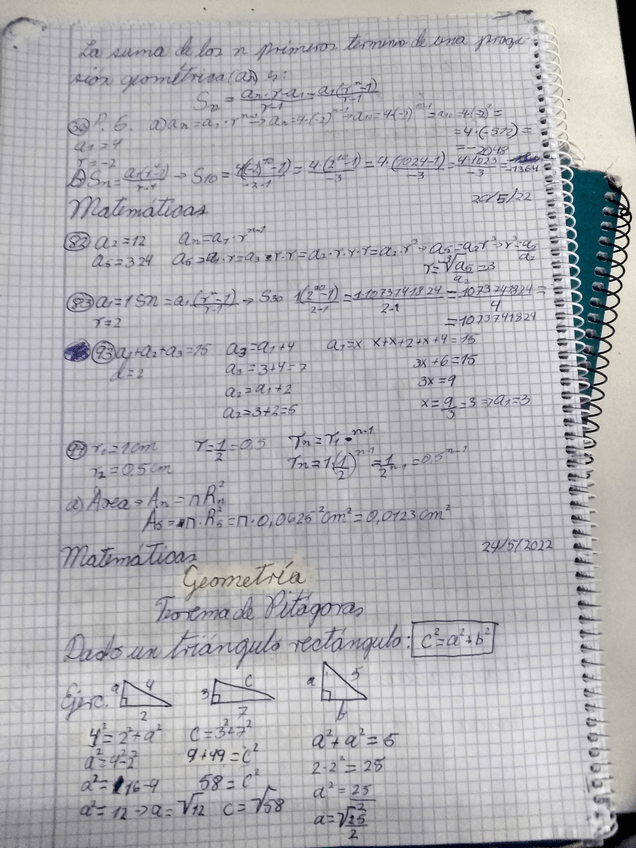 La suma de los n primeros termino de una progre-
sion geométrica (an) es:
Sn = an·r-a1/r-1 = a1(rⁿ-1)/r-1
P. 6. a) an = a1·rⁿ⁻¹ → an = 4·(-2)ⁿ⁻¹ →
a1 = 4 = 4·(-512) =
r = -2 = -2048
b) Sn = a1(rⁿ-1)/r-1 → S10 = 4((-2)¹⁰-1)/-2-1 = 4·(2¹⁰-1)/-3 = 4·(1024-1)/-3 = 4·1023/-3 = -1364
Matemáticas 23/5/22
82 a2 = 12 an = a1·rⁿ⁻¹
a5 = 324 r = ∛a5/a2 = 3
83 a1 = 1 Sn = a1(rⁿ-1)/r-1 → S30 1(2³⁰-1)/2-1 = 1·1073741824/2-1 = 1073741824/4 =
r = 2 = 1073741824
93 a1+a2+a3 = 15 a3 = a1+4 a1 = x x+x+2+x+4 = 15
d = 2 a3 = 3+4 = 7 3x+6 = 15
a2 = a1+2 3x = 9
a2 = 3+2 = 5 x = 9/3 = 3 → a1 = 3
r1 = 1cm r = 1/2 = 0,5 rn = r1·ⁿ⁻¹
r2 = 0,5cm rn = 1(1/2)ⁿ⁻¹ = 1/2ⁿ⁻¹ = 0,5ⁿ⁻¹
a) Area → An = πRn²
A5 = π·R5² = π·0,0625²cm² = 0,0123cm²
Matemáticas 24/5/2022
Geometría
Teorema de Pitágoras
Dado un triángulo rectángulo: c² = a²+b²
Ejerc. a 4 2 3 c 7 a 5 b
4² = 2²+a² c = 3²+7² a²+a² = 5
a² = 4²-2² 9+49 = c² 2·2² = 25
a² = 16-4 58 = c² a² = 25/2
a² = 12 → a = √12 c = √58 a = √25/2